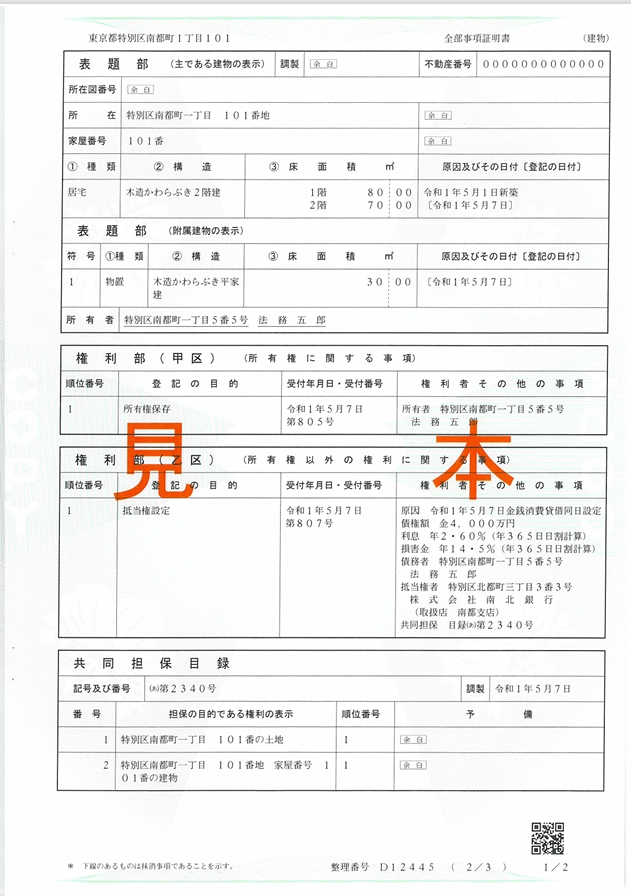 東京都特別区南都町１丁目１０１ 全部事項証明書 （建物）
表 題 部 （主である建物の表示） 調製 余 白 不動産番号 ０００００００００００００
所在図番号 余 白
所 在 特別区南都町一丁目 １０１番地 余 白
家屋番号 １０１番 余 白
① 種 類 ② 構 造 ③ 床 面 積 ㎡ 原因及びその日付〔登記の日付〕
居宅 木造かわらぶき２階建 １階 ８０ ００ 令和１年５月１日新築
２階 ７０ ００ 〔令和１年５月７日〕
表 題 部 （附属建物の表示）
符 号 ①種 類 ② 構 造 ③ 床 面 積 ㎡ 原因及びその日付〔登記の日付〕
１ 物置 木造かわらぶき平家 ３０ ００ 〔令和１年５月７日〕
建
所 有 者 特別区南都町一丁目５番５号 法 務 五 郎
権 利 部 （ 甲 区 ） （ 所 有 権 に 関 す る 事 項 ）
順位番号 登 記 の 目 的 受付年月日・受付番号 権 利 者 そ の 他 の 事 項
１ 所有権保存 令和１年５月７日 所有者 特別区南都町一丁目５番５号
第８０５号 法 務 五 郎
見 本
権 利 部 （ 乙 区 ） （ 所 有 権 以 外 の 権 利 に 関 す る 事 項 ）
順位番号 登 記 の 目 的 受付年月日・受付番号 権 利 者 そ の 他 の 事 項
１ 抵当権設定 令和１年５月７日 原因 令和１年５月７日金銭消費貸借同日設定
第８０７号 債権額 金４，０００万円
利息 年２・６０％（年３６５日日割計算）
損害金 年１４・５％（年３６５日日割計算）
債務者 特別区南都町一丁目５番５号
法 務 五 郎
抵当権者 特別区北都町三丁目３番３号
株 式 会 社 南 北 銀 行
（取扱店 南都支店）
共同担保 目録㋐第２３４０号
共 同 担 保 目 録
記号及び番号 ㋐第２３４０号 調製 令和１年５月７日
番 号 担保の目的である権利の表示 順位番号 予 備
１ 特別区南都町一丁目 １０１番の土地 １ 余 白
２ 特別区南都町一丁目 １０１番地 家屋番号 １ １ 余 白
０１番の建物
＊ 下線のあるものは抹消事項であることを示す。 整理番号 Ｄ１２４４５ （ ２／３ ） １／２